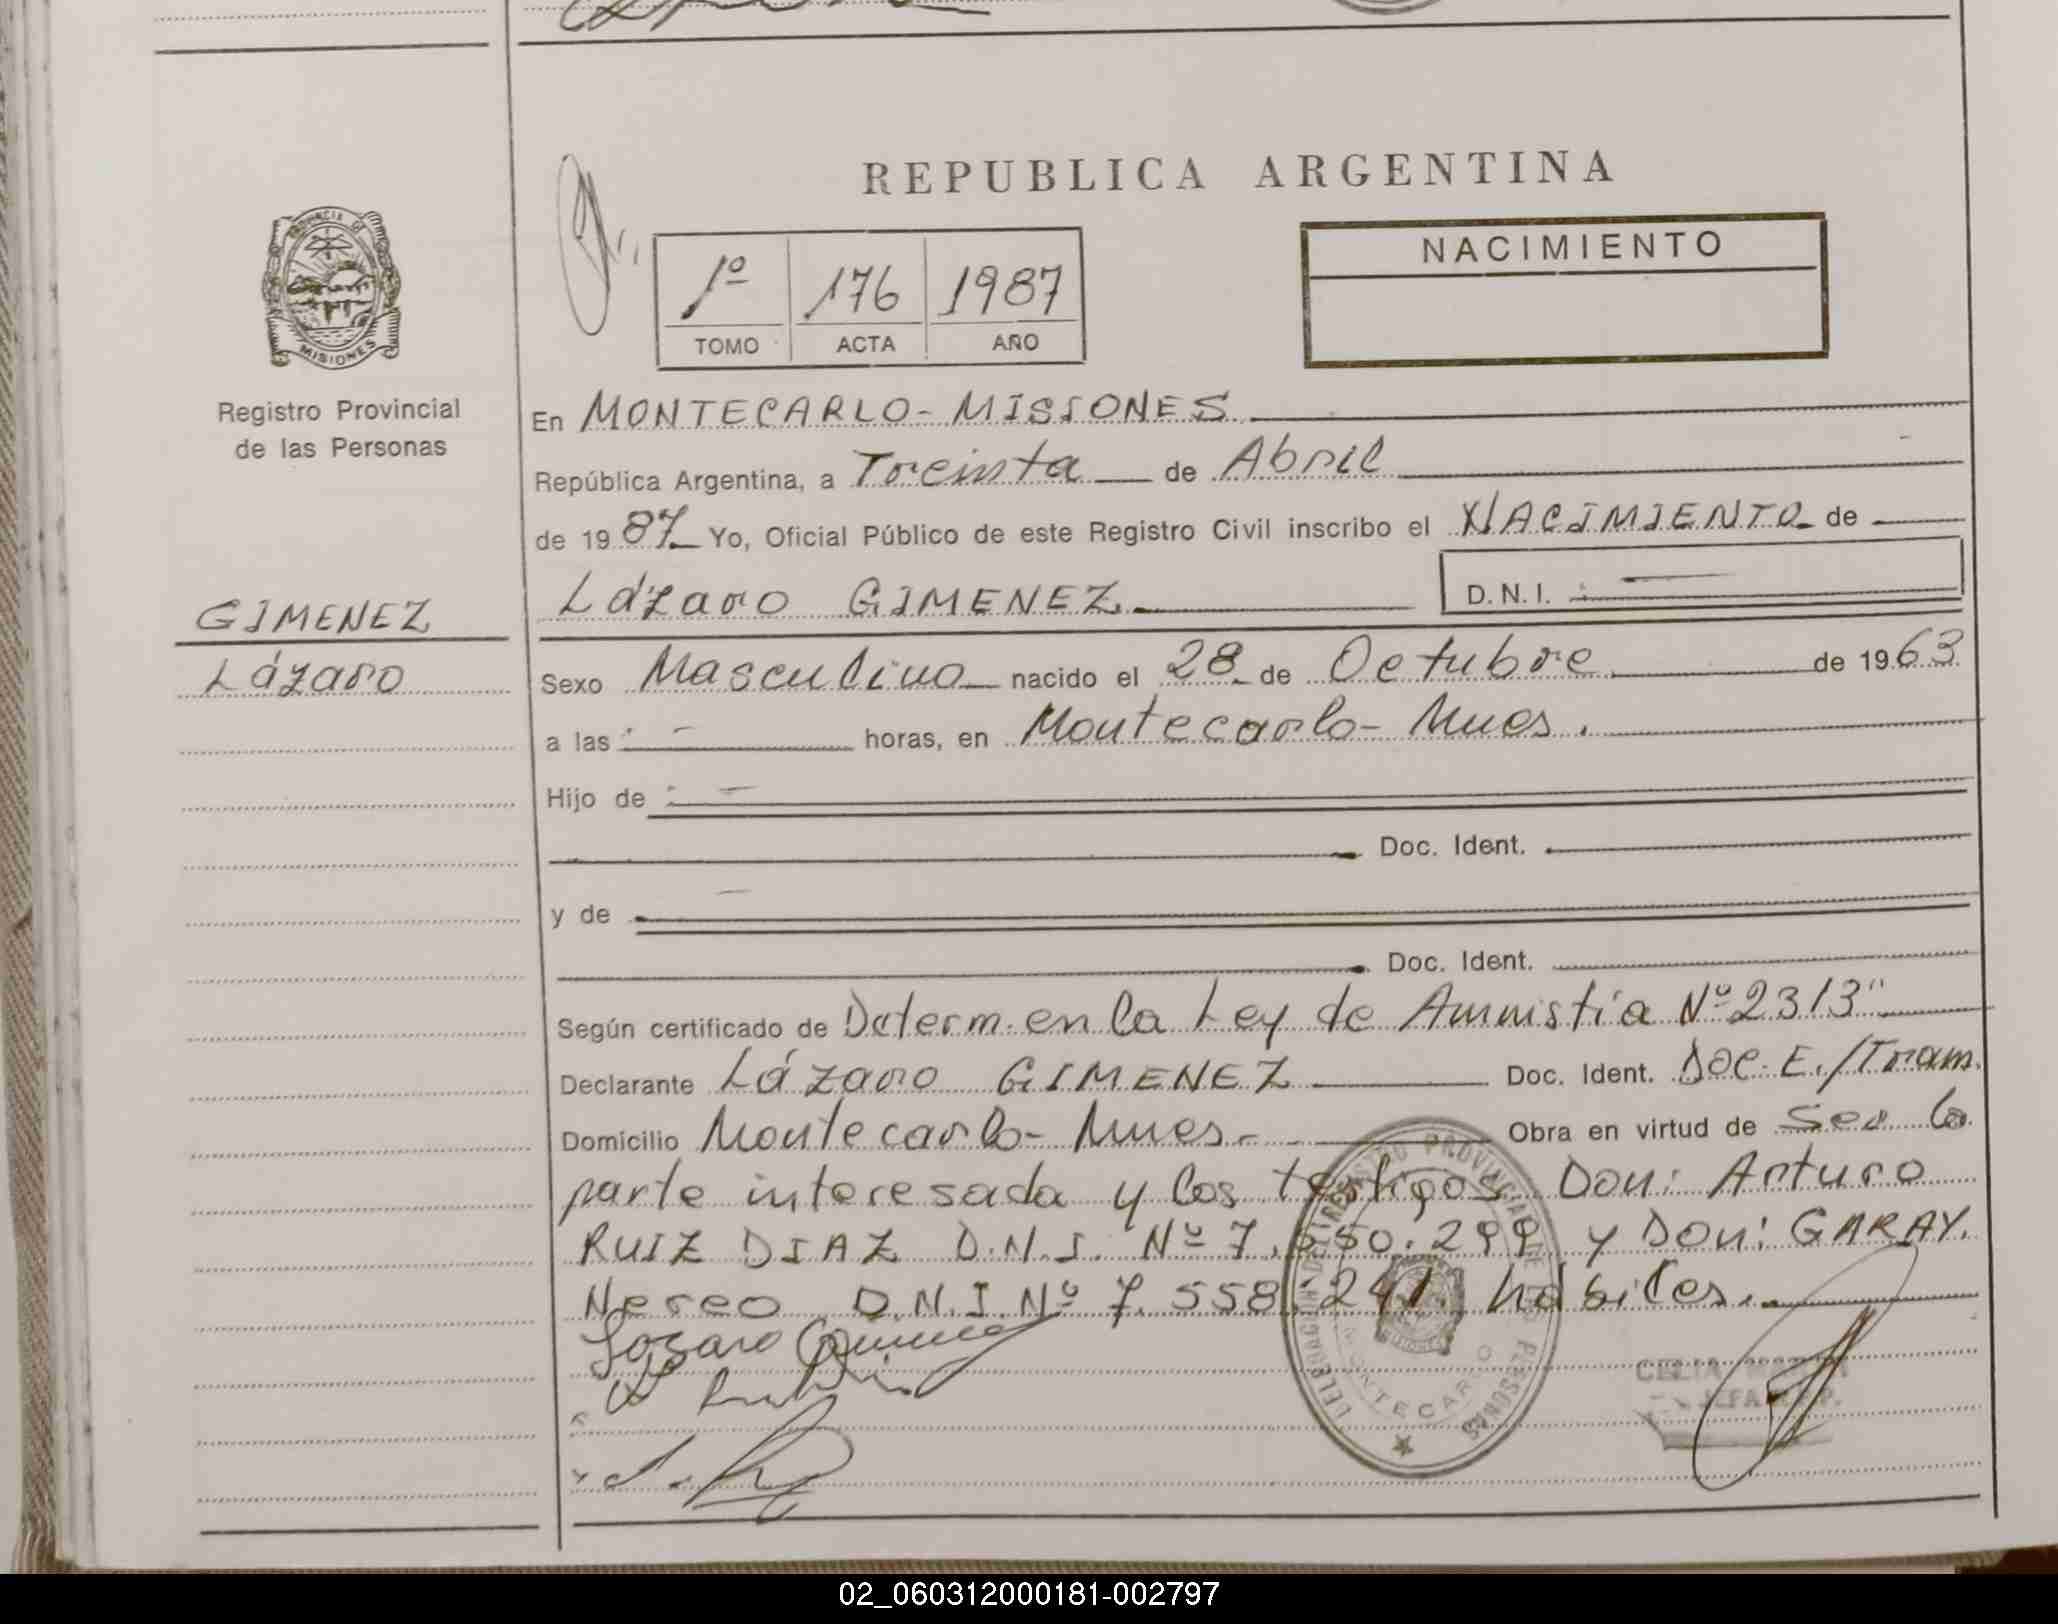 REPUBLICA ARGENTINA
PROVINCIA DE
MISIONES
Registro Provincial
de las Personas
1º 176 1987
TOMO ACTA AÑO
NACIMIENTO
En MONTECARLO - MISIONES
República Argentina, a Treinta de Abril
de 19 87 Yo, Oficial Público de este Registro Civil inscribo el NACIMIENTO de
Lázaro GIMENEZ D.N.I. : —
GIMENEZ
Lázaro
Sexo Masculino nacido el 28 de Octubre de 19 63
a las - horas, en Montecarlo - Mnes.
Hijo de -
Doc. Ident.
y de -
Doc. Ident.
Según certificado de Determ. en la Ley de Amnistía Nº 2313"
Declarante Lázaro GIMENEZ Doc. Ident. Doc. E./Tram.
Domicilio Montecarlo - Mnes. - Obra en virtud de Ser la
parte interesada y los testigos Don: Arturo
RUIZ DIAZ D.N.I. Nº 7.550.299 y Don: GARAY.
Nereo D.N.I. Nº 7.558.241. hábiles.
Lazaro Gimenez
REGISTRO PROVINCIAL DE LAS PERSONAS
MONTECARLO
CELIA
02_060312000181-002797